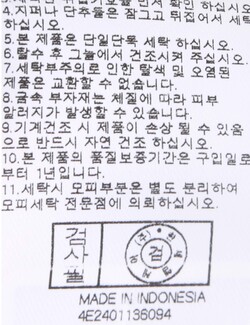 먼저 확인 하십시오
4.지퍼나 단추들은 잠그고 뒤집어서 세탁
하십시오.
5.본 제품은 단일단독 세탁 하십시오.
6.탈수 후 그늘에서 건조시켜 주십시오.
7.세탁부주의로 인한 탈색 및 오염된
제품은 교환할 수 없습니다.
8.금속 부자재는 체질에 따라 피부
알러지가 발생할 수 있습니다.
9.기계건조 시 제품이 손상 될 수 있음
으로 반드시 자연 건조 하십시오.
10.본 제품의 품질보증기간은 구입일로
부터 1년입니다.
11.세탁시 모피부분은 별도 분리하여
모피세탁 전문점에 의뢰하십시오.
검사필
검
MADE IN INDONESIA
4E2401136094